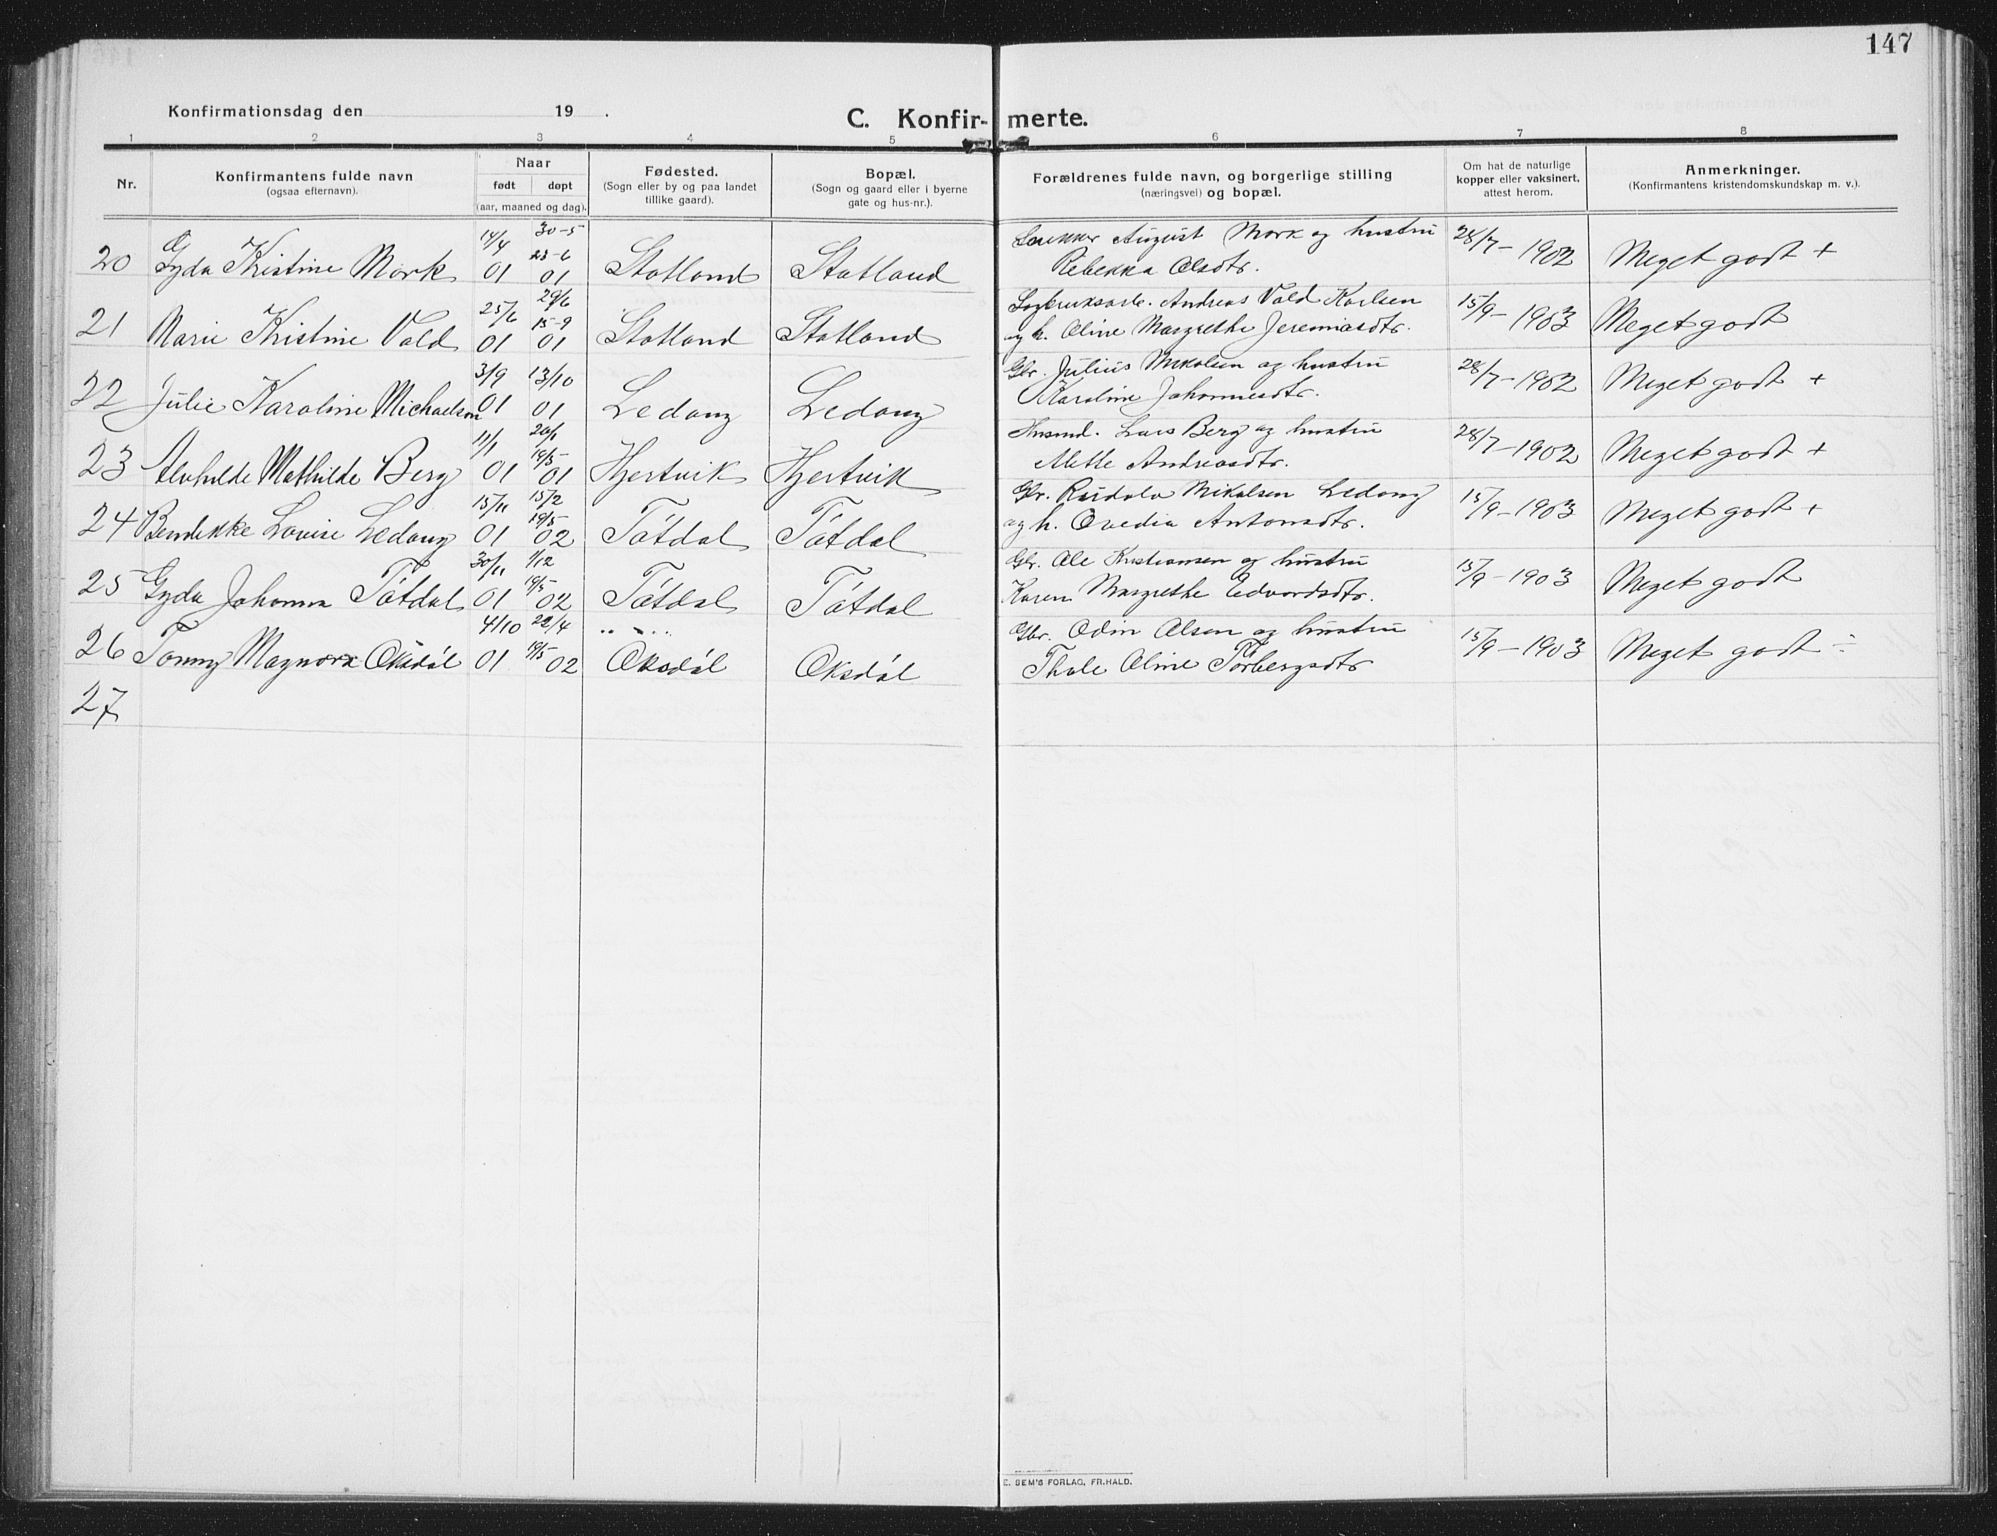 147
Konfirmationsdag den 19 .
C. Konfir- merte.
1 2 3 4 5 6 7 8
Nr. Konfirmantens fulde navn (ogsaa efternavn). Naar født døpt (aar, maaned og dag). Fødested. (Sogn eller by og paa landet tillike gaard). Bopæl. (Sogn og gaard eller i byerne gate og hus-nr.). Forældrenes fulde navn, og borgerlige stilling (næringsvei) og bopæl. Om hat de naturlige kopper eller vaksinert, attest herom. Anmerkninger. (Konfirmantens kristendomskundskap m. v.).
14/4 30-5 August Mork og hustru 28/7-1902
20 Gyda Kristine Mork 01 23-6 01 Statland Statland Rebekka Olsdtr. Meget godt +
25/6 29/6 Andreas Vold Karlsen 15/9-1903
21 Marie Kristine Vold 01 15-9 01 Statland Statland og h. Oline Margrethe Jeremiasdtr. Meget godt
3/9 13/10 Gbr. Julius Mikalsen og hustru 28/7-1902
22 Julie Karoline Michaelsen 01 01 Ledang Ledang Karoline Johannesdtr. Meget godt +
11/1 20/1 Husmd. Lars Berg og hustru 28/7-1902
23 Alvhilde Mathilde Berg 01 19/5 01 Hjertvik Hjertvik Mette Andreasdtr. Meget godt +
15/11 15/2 Gbr. Mikalsen Ledang 15/9-1903
24 Bendikke Lovise Ledang 01 19/5 02 Tøtdal Tøtdal og h. Ovedia Antonsdtr. Meget godt +
30/11 1/12 Gbr. Ole Kristiansen og hustru 15/9-1903
25 Gyda Johanna Tøtdal 01 19/5 02 Tøtdal Tøtdal Karen Margrethe Edvardsdtr. Meget godt
4/10 22/4 Gbr. Odin Olsen og hustru 15/9-1903
26 Tonny Magnora Oksdøl 01 19/5 02 Oksdøl Oksdøl Thale Oline Torbergsdtr Meget godt ÷
27
E. SEM'S FORLAG, FR.HALD.